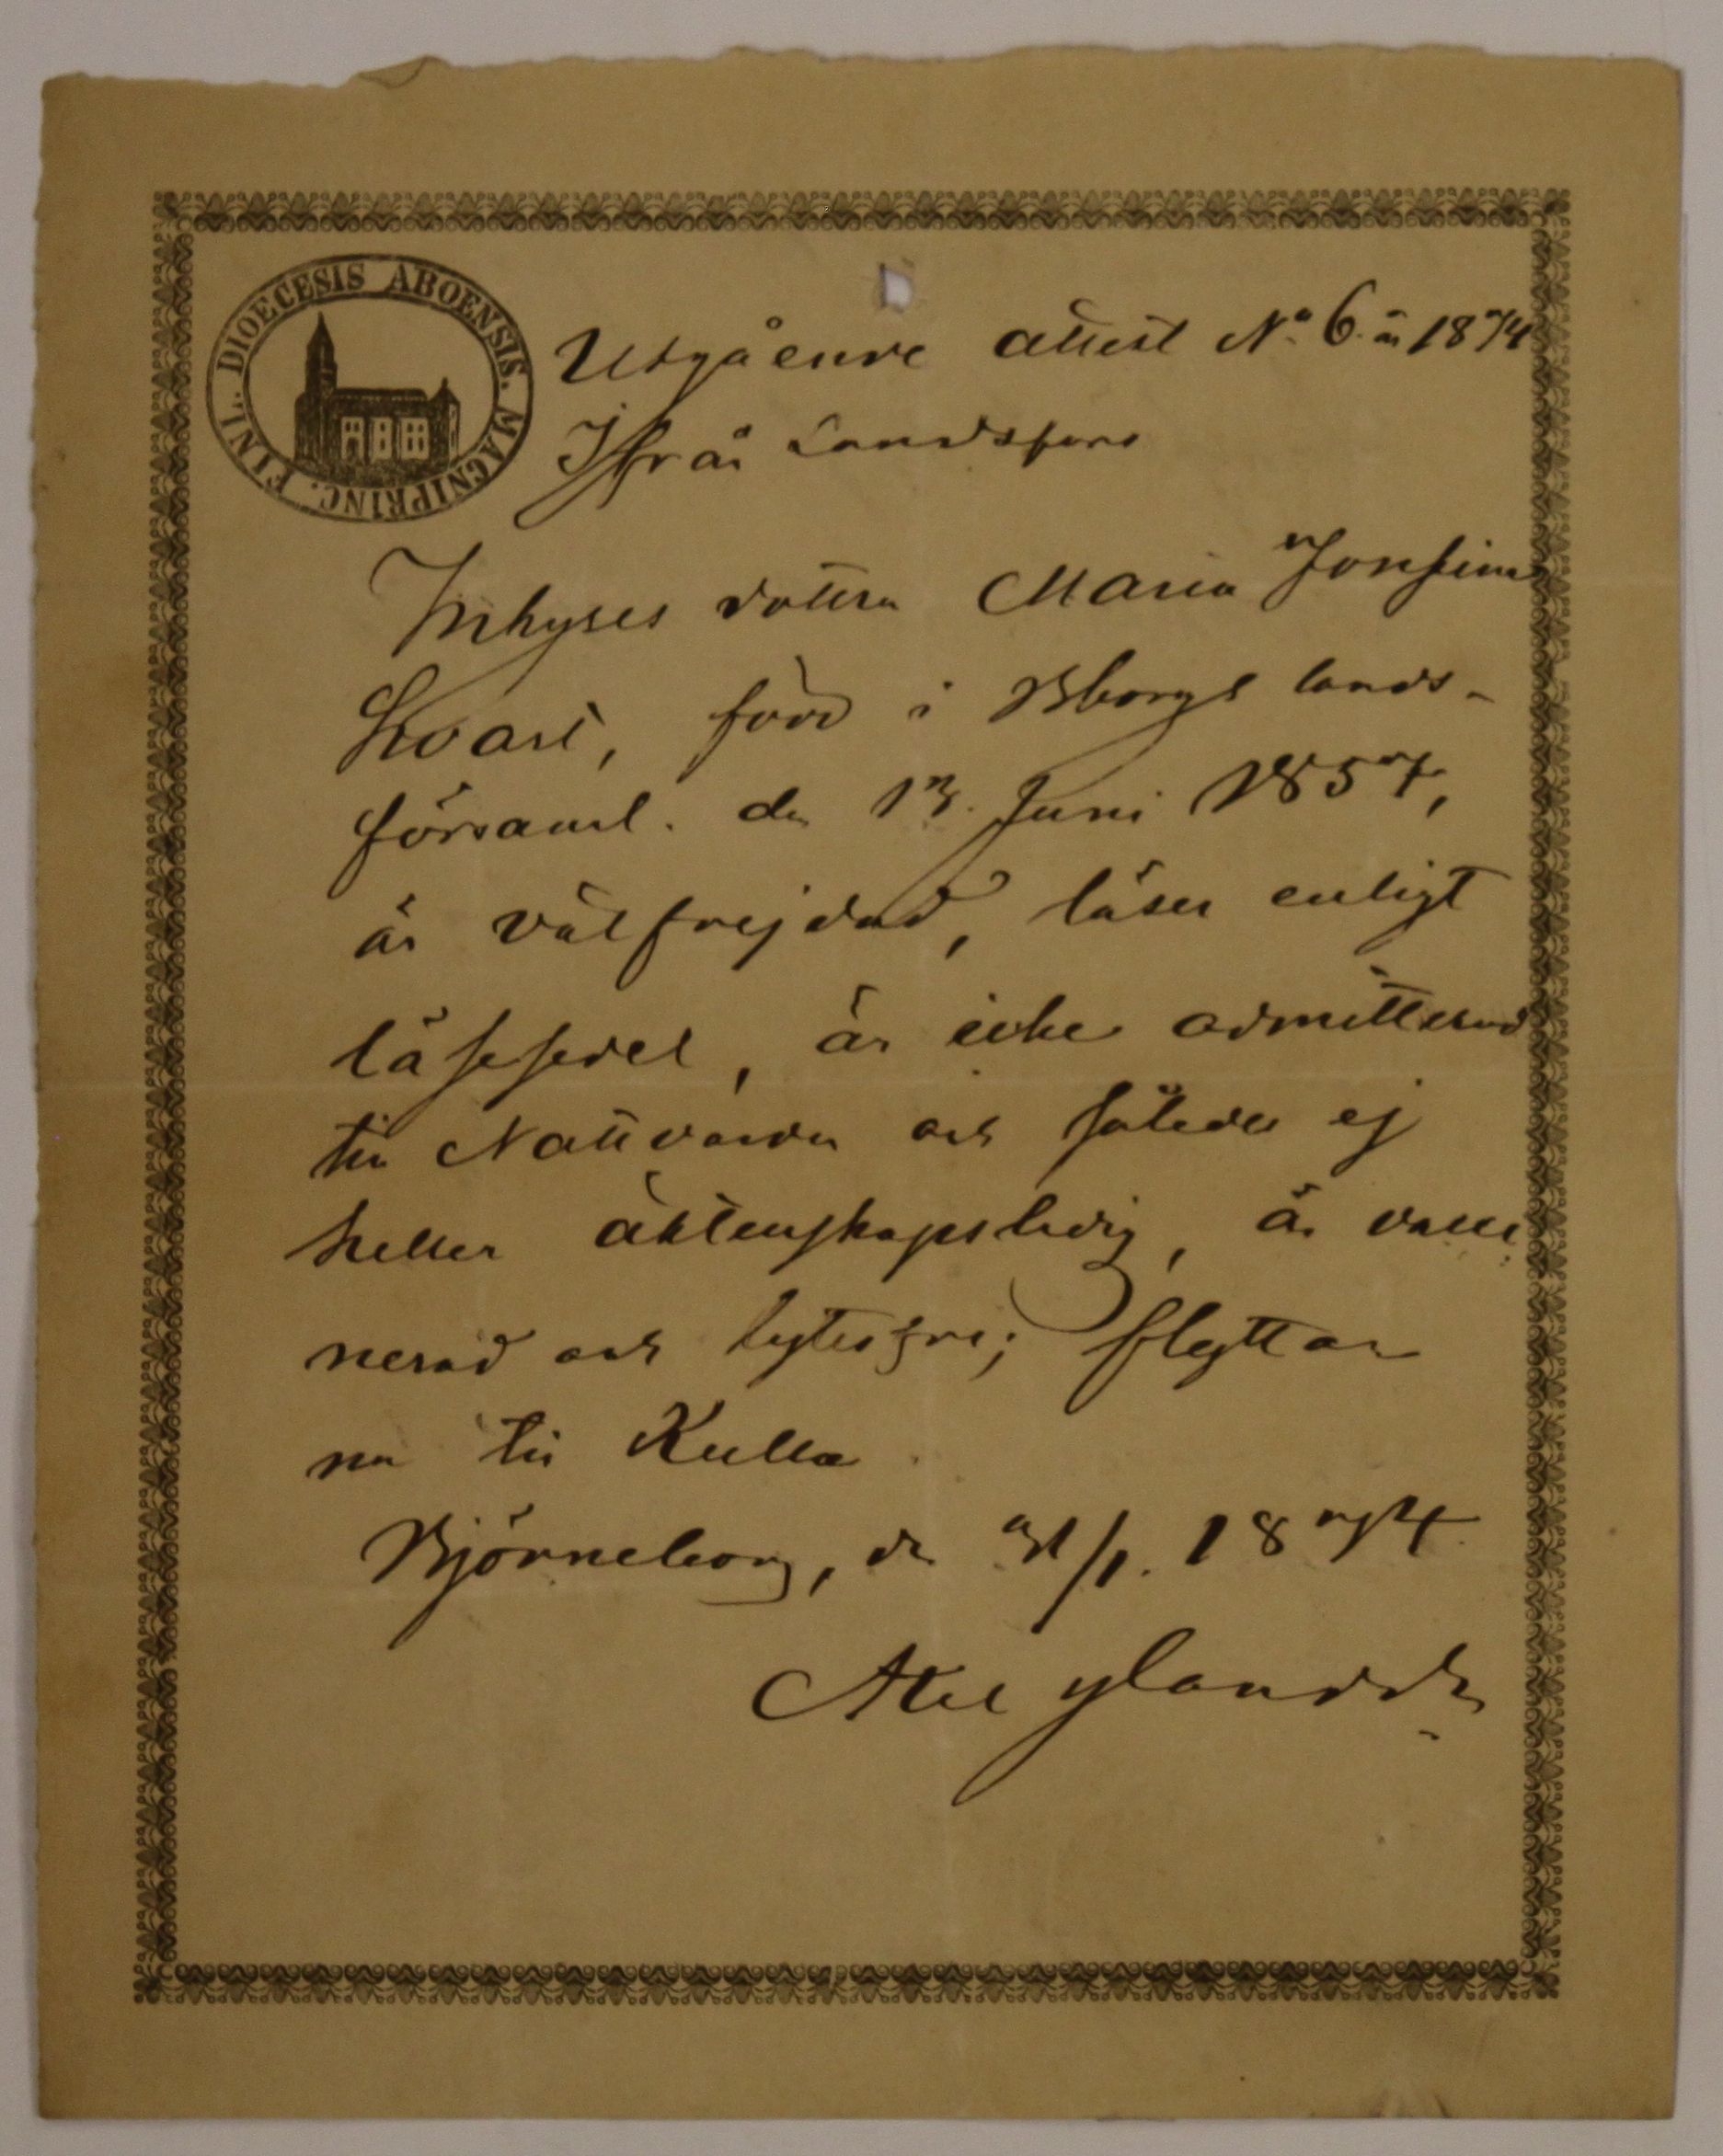 FINL. DIOECESIS ABOENSIS. MAGNIPRINC.
Utgående attest No. 6. år 1874
Ifrån Landsförs
Inhyses dottren Maria Josefina
Kvast, född i Bborgs lands-
församl. den 13. Juni 1857,
är välfrejdad, läser enligt
läsesedel, är icke admitterad
till Nattvarden och således ej
heller äktenskapsledig, är vacci
nerad och lytesfri; flyttar
nu till Kulla
Björneborg, den 31/1. 1874
Axel